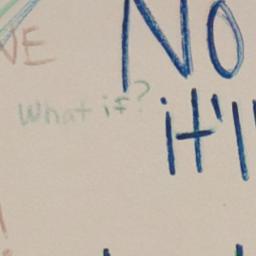 NE
No
What if?
it'll